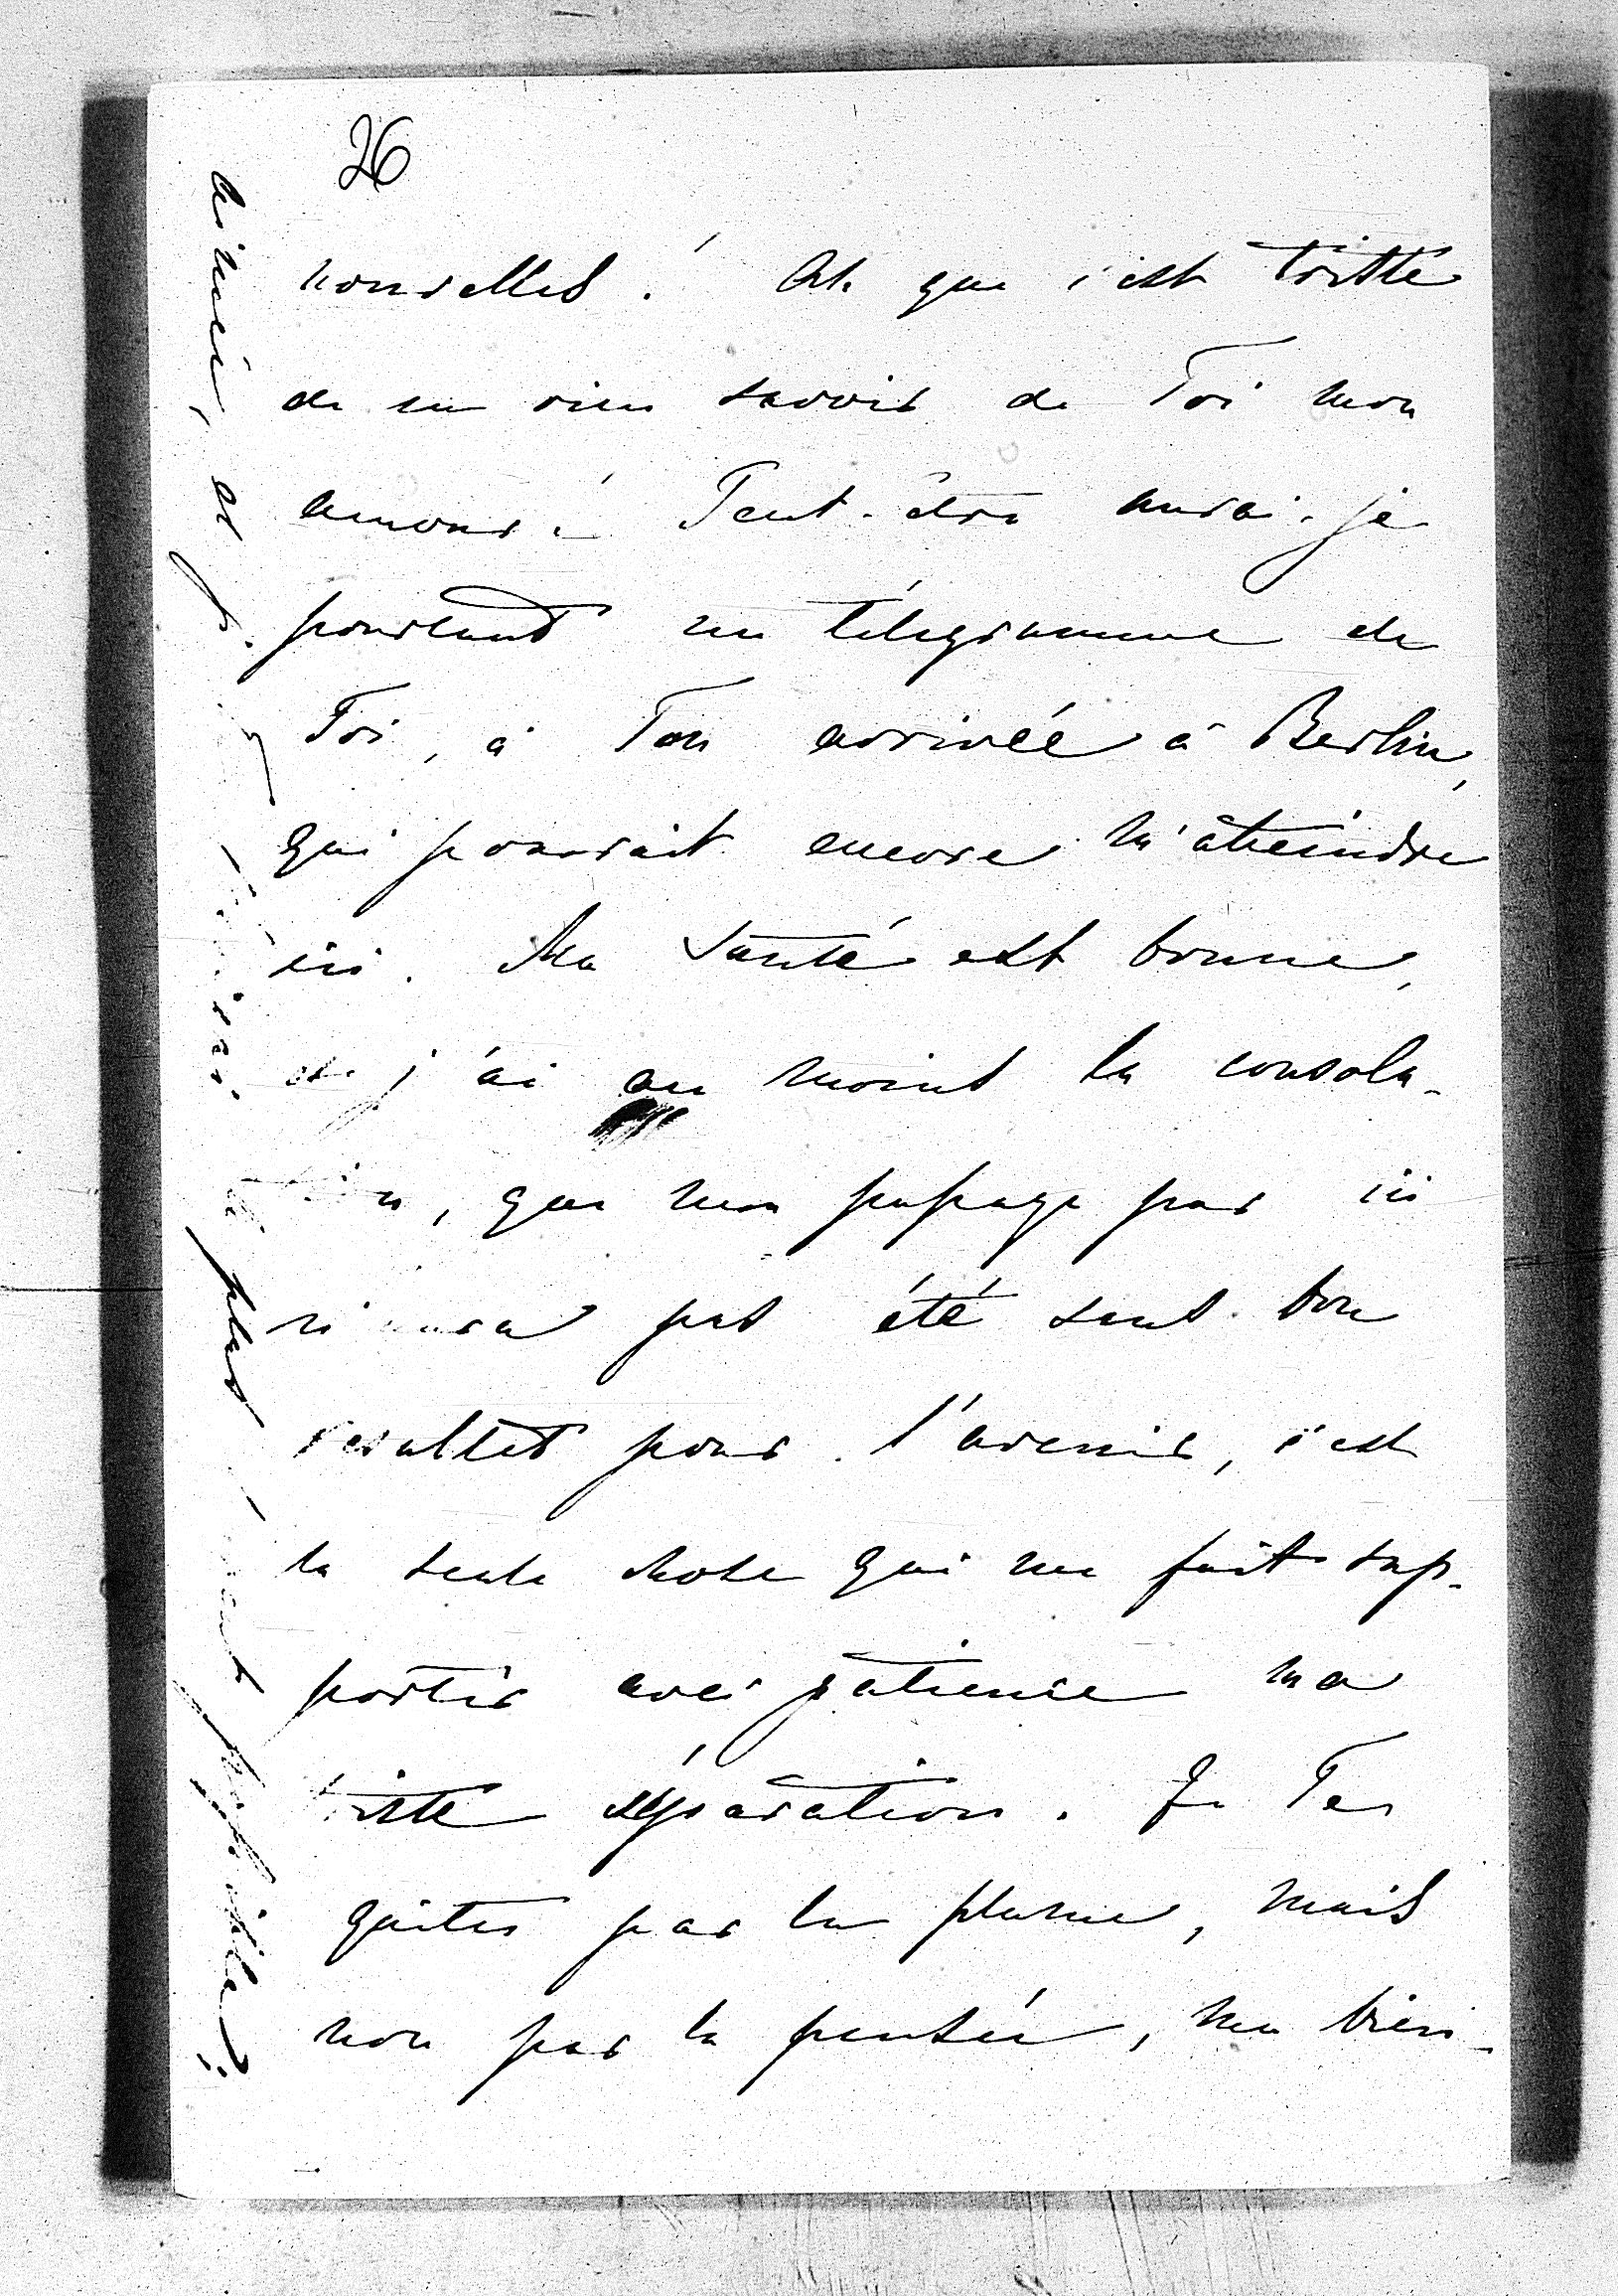 26
nouvelles! Ah que c'est triste
de ne rien savoir de Toi mon
amour! Peut-être aurai-je
pourtant un télégramme de
Toi, à Ton arrivée à Berlin,
qui pourrait encore m'atteindre
ici. Ma santé est bonne,
et j'ai au moins la consola-
tion, que mon passage par ici
n'aura pas été sans bon
resultat pour l'avenir, c'est
la seule chose qui me fait sup-
porter avec patience ma
triste séparation. Je Te
quitte par la plume, mais
non par la pensée, ma bien-
aimée, et
plus